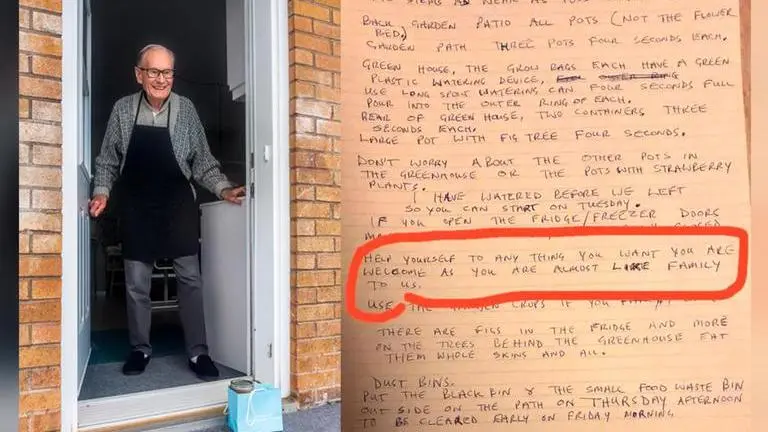 BACK GARDEN PATIO ALL POTS (NOT THE FLOWER
BED).
GARDEN PATH THREE POTS FOUR SECONDS EACH.
GREEN HOUSE, THE GROW BAGS EACH HAVE A GREEN
PLASTIC WATERING DEVICE,
USE LONG SPOUT WATERING CAN FOUR SECONDS FULL
POUR INTO THE OUTER RING OF EACH.
REAR OF GREEN HOUSE, TWO CONTAINERS THREE
SECONDS EACH.
LARGE POT WITH FIG TREE FOUR SECONDS.
DON'T WORRY ABOUT THE OTHER POTS IN
THE GREENHOUSE OR THE POTS WITH STRAWBERRY
PLANTS.
I HAVE WATERED BEFORE WE LEFT
SO YOU CAN START ON TUESDAY.
IF YOU OPEN THE FRIDGE/FREEZER DOORS
HELP YOURSELF TO ANY THING YOU WANT YOU ARE
WELCOME AS YOU ARE ALMOST LIKE FAMILY
TO US.
USE THE
THERE ARE FIGS IN THE FRIDGE AND MORE
ON THE TREES BEHIND THE GREENHOUSE EAT
THEM WHOLE SKINS AND ALL.
DUST BINS.
PUT THE BLACK BIN & THE SMALL FOOD WASTE BIN
OUT SIDE ON THE PATH ON THURSDAY AFTERNOON
TO BE CLEARED EARLY ON FRIDAY MORNING